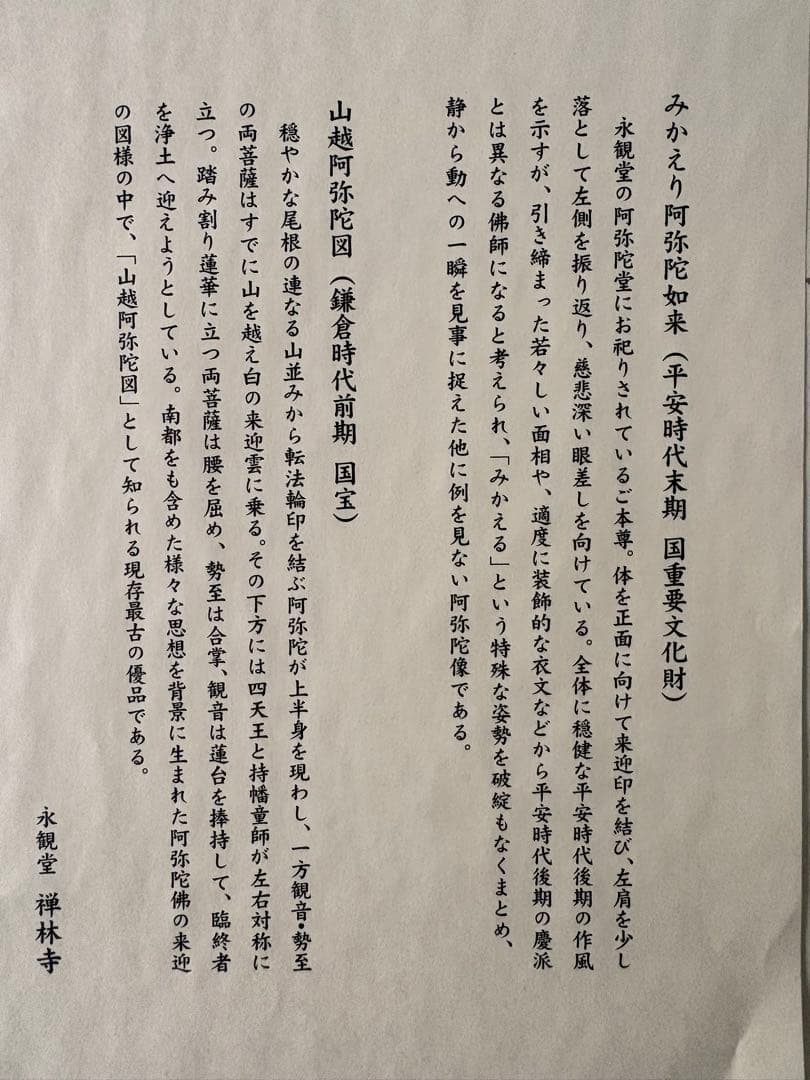 みかえり阿弥陀如来（平安時代末期 国重要文化財）
永観堂の阿弥陀堂にお祀りされているご本尊。体を正面に向けて来迎印を結び、左肩を少し
落として左側を振り返り、慈悲深い眼差しを向けている。全体に穏健な平安時代後期の作風
を示すが、引き締まった若々しい面相や、適度に装飾的な衣文などから平安時代後期の慶派
とは異なる佛師になると考えられ、「みかえる」という特殊な姿勢を破綻もなくまとめ、
静から動への一瞬を見事に捉えた他に例を見ない阿弥陀像である。
山越阿弥陀図（鎌倉時代前期 国宝）
穏やかな尾根の連なる山並みから転法輪印を結ぶ阿弥陀が上半身を現わし、一方観音・勢至
の両菩薩はすでに山を越え白の来迎雲に乗る。その下方には四天王と持幡童師が左右対称に
立つ。踏み割り蓮華に立つ両菩薩は腰を屈め、勢至は合掌、観音は蓮台を捧持して、臨終者
を浄土へ迎えようとしている。南都をも含めた様々な思想を背景に生まれた阿弥陀佛の来迎
の図様の中で、「山越阿弥陀図」として知られる現存最古の優品である。
永観堂 禅林寺